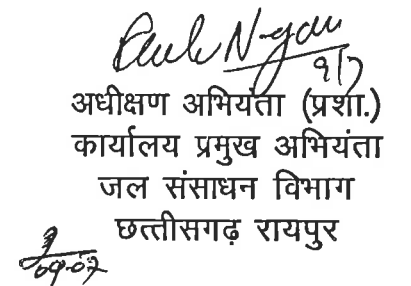 9/7
अधीक्षण अभियंता (प्रशा.)
कार्यालय प्रमुख अभियंता
जल संसाधन विभाग
छत्तीसगढ़ रायपुर
09-07